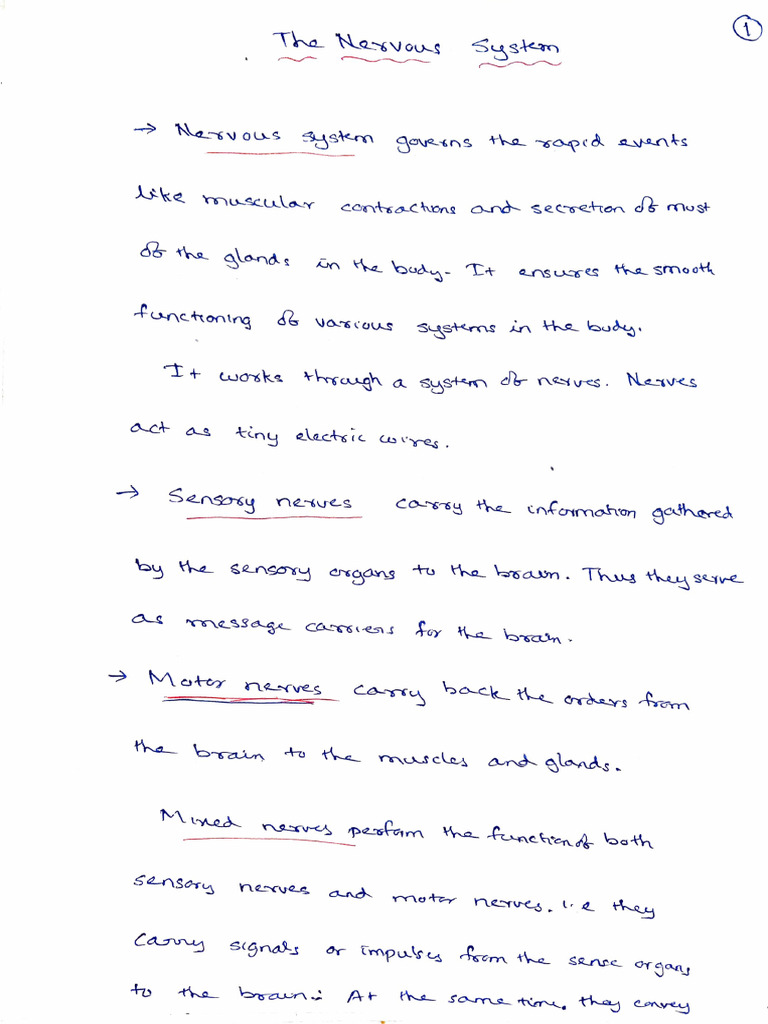 1
The Nervous System
→ Nervous system governs the rapid events
like muscular contractions and secretion of must
of the glands in the body. It ensures the smooth
functioning of various systems in the body.
It works through a system of nerves. Nerves
act as tiny electric wires.
→ Sensory nerves carry the information gathered
by the sensory organs to the brain. Thus they serve
as message carriers for the brain.
→ Motor nerves carry back the orders from
the brain to the muscles and glands.
Mixed nerves perform the function of both
sensory nerves and motor nerves. i.e they
carry signals or impulses from the sense organs
to the brain. At the same time, they convey